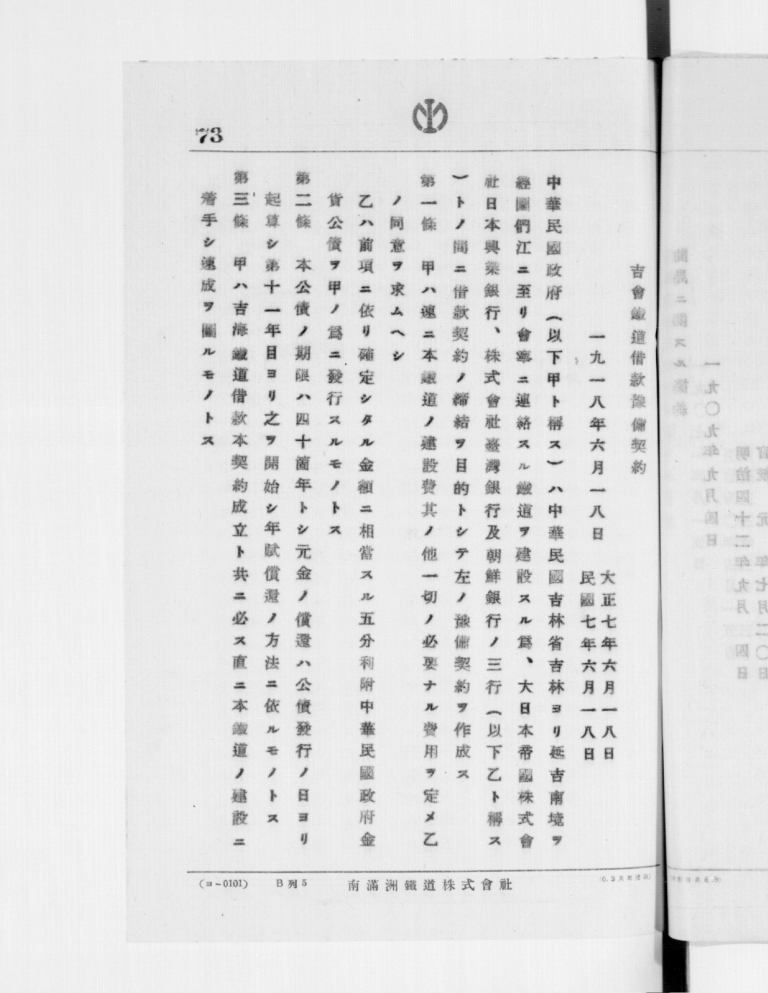 73
吉會鐵道借款豫備契約
一九一八年六月一八日
大正七年六月一八日
民國七年六月一八日
中華民國政府(以下甲ト稱ス)ハ中華民國吉林省吉林ヨリ延吉南境ヲ
經圖們江ニ至リ會寧ニ連絡スル鐵道ヲ建設スル爲、大日本帝國株式會
社日本興業銀行、株式會社臺灣銀行及朝鮮銀行ノ三行(以下乙ト稱ス
)トノ間ニ借款契約ノ締結ヲ目的トシテ左ノ豫備契約ヲ作成ス
第一條 甲ハ速ニ本鐵道ノ建設費其ノ他一切ノ必要ナル費用ヲ定メ乙
ノ同意ヲ求ムヘシ
乙ハ前項ニ依リ確定シタル金額ニ相當スル五分利附中華民國政府金
貨公債ヲ甲ノ爲ニ發行スルモノトス
第二條 本公債ノ期限ハ四十箇年トシ元金ノ償還ハ公債發行ノ日ヨリ
起算シ第十一年目ヨリ之ヲ開始シ年賦償還ノ方法ニ依ルモノトス
第三條 甲ハ吉海鐵道借款本契約成立ト共ニ必ス直ニ本鐵道ノ建設ニ
着手シ速成ヲ圖ルモノトス
(ヨ-0101) B列5 南滿洲鐵道株式會社